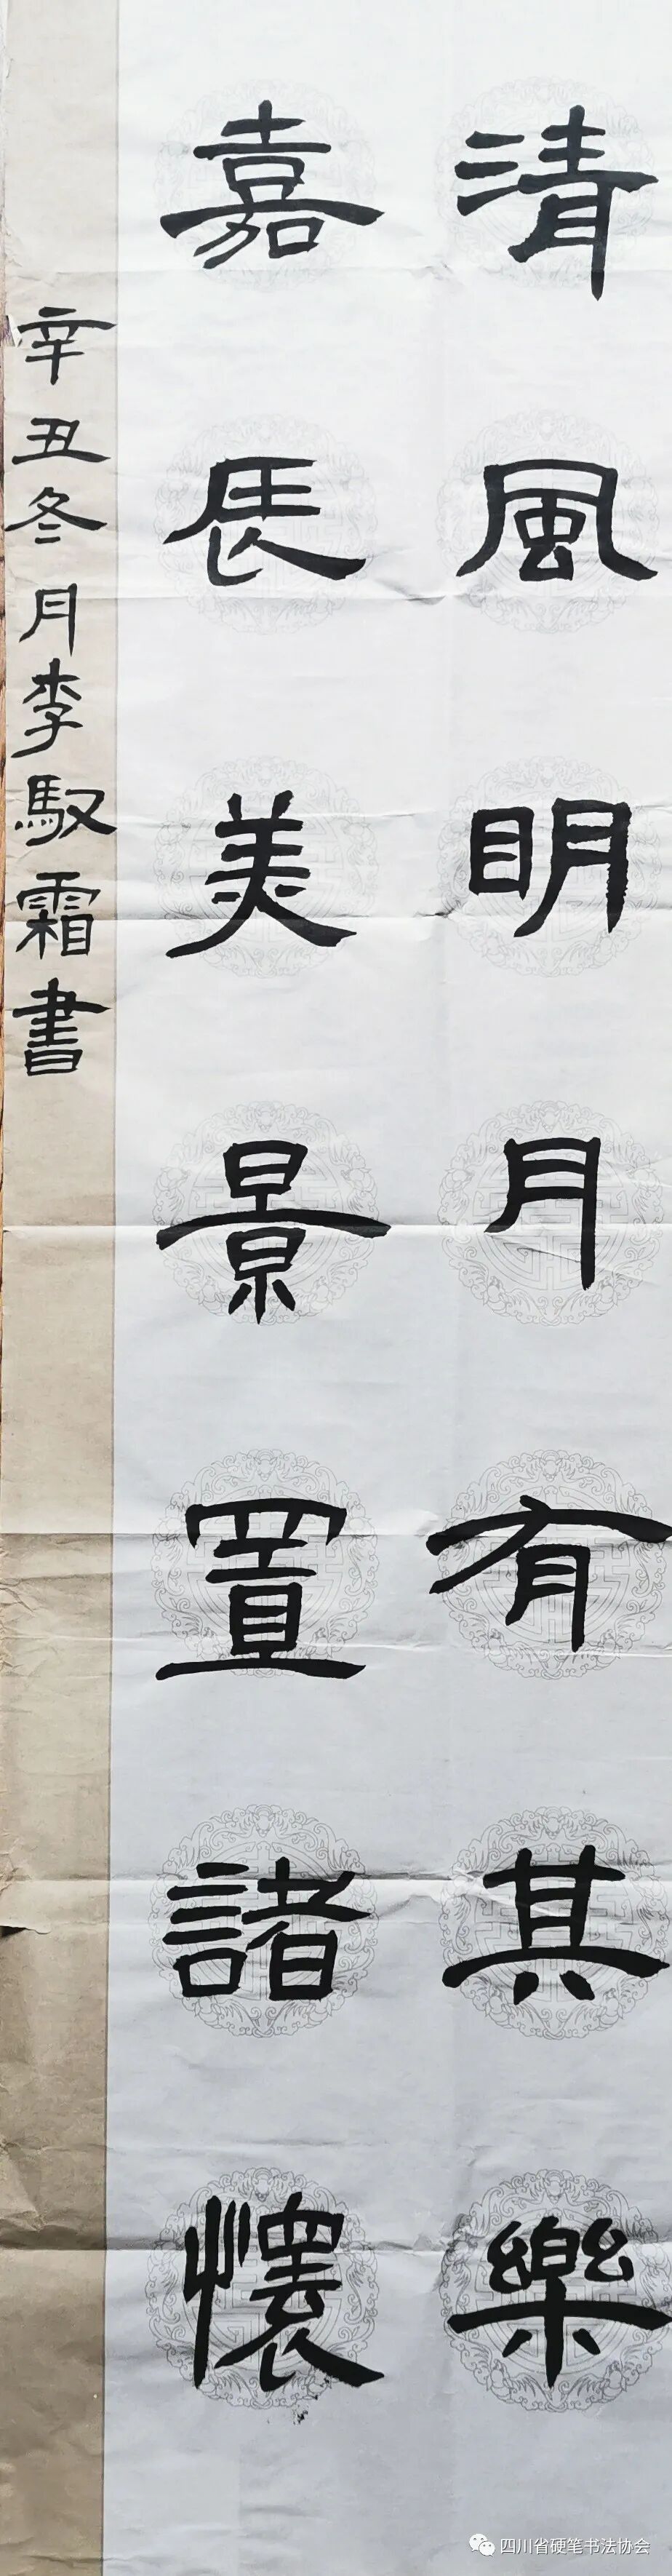 清風明月有其樂
嘉辰美景置諸懷
辛丑冬月李馭霜書
四川省硬笔书法协会